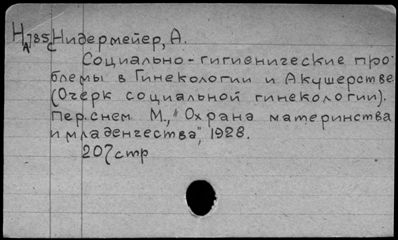 НА785 Нидермейер, А.
Социально-гигиенические про-
блемы в Гинекологии и Акушерстве
(Очерк социальной гинекологии).
Пер.с нем М., "Охрана материнства
и младенчества", 1928.
207 стр